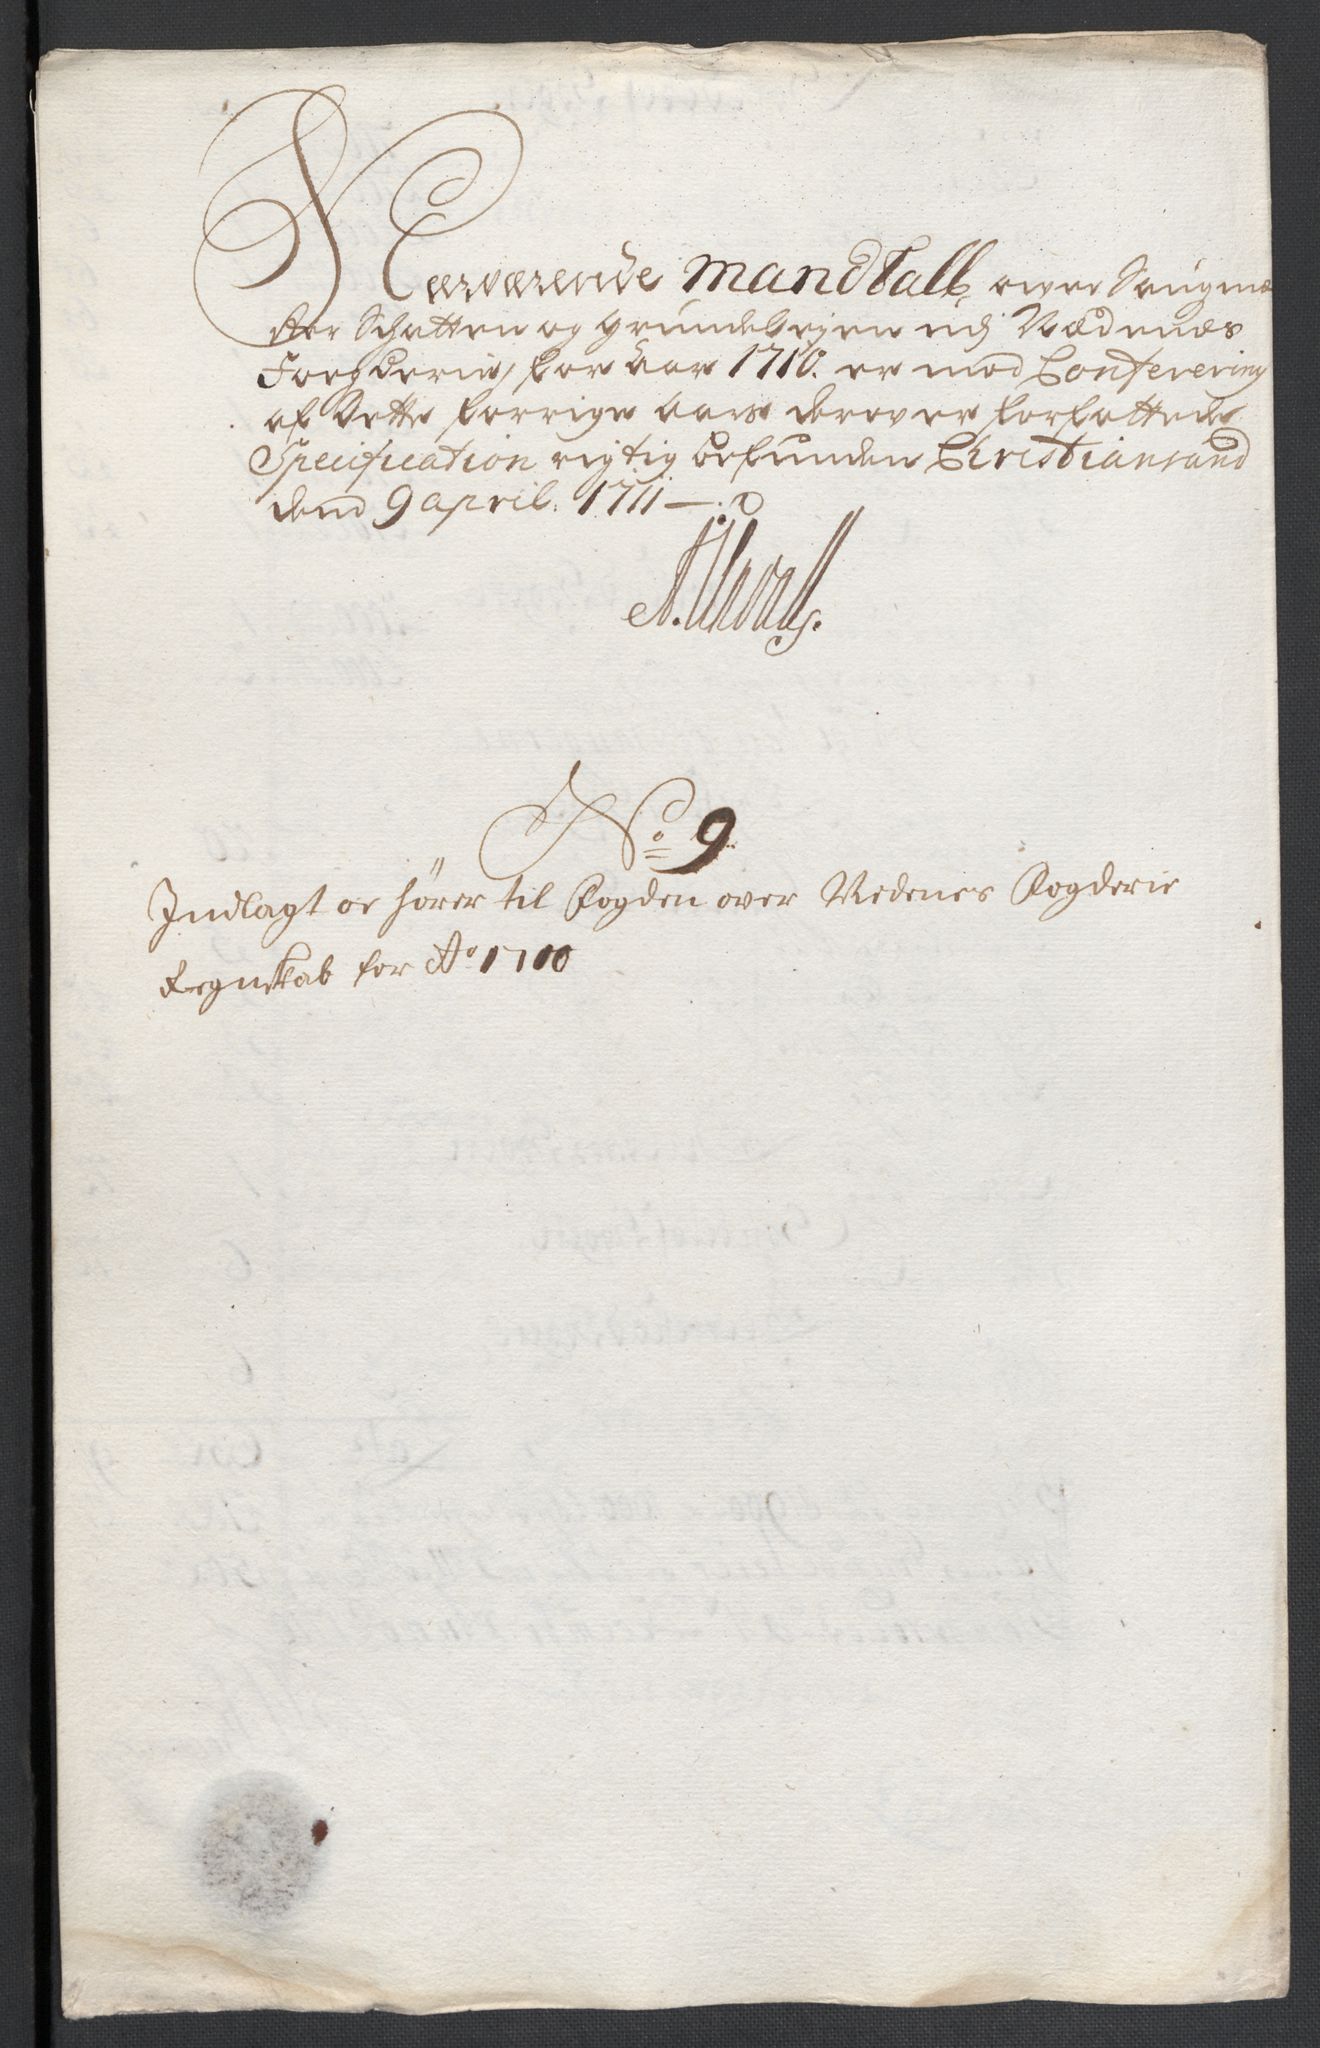 Nærværende Mandtall over Saugmæ
ster Schatten og grundeleyen udj Nædenes
Fogderie, for aar 1710. er mod Conferering
af dette forrige aars derover forfattede
Specification rigtig befunden Christiansand
dend 9 april. 1711
No 9
Indlagt oc hører til Fogden over Nedenes Fogderie
Regnskab for Ao 1710